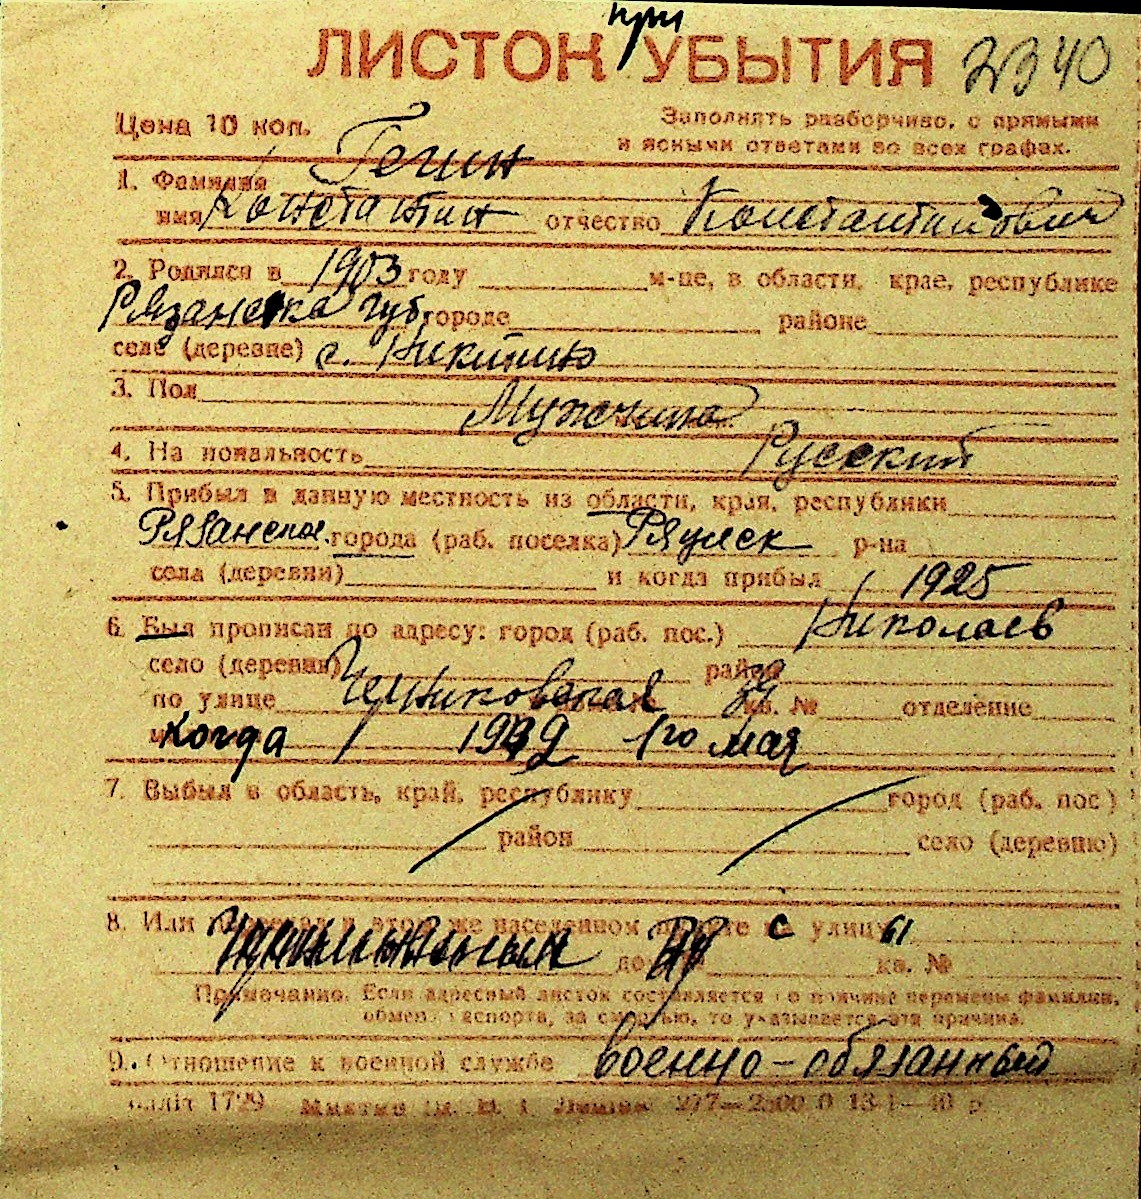 при
ЛИСТОК УБЫТИЯ 2340
Цена 10 коп. Заполнять разборчиво, с прямыми
и ясными ответами во всех графах.
1. Фамилия Гечин
имя Константин отчество Константинович
2. Родился в 1903 году м-це, в области, крае, республике
Рязанска губ. городе районе
селе (деревне) с. Никитино
3. Пол Мужчина
4. Национальность Русский
5. Прибыл в данную местность из области, края, республики
Рязанской города (раб. поселка) р-на
села (деревни) и когда прибыл 1925
6. Был прописан по адресу: город (раб. пос.) Николаев
село (деревня) район
по улице кв. № отделение
когда 1942 1го мая
7. Выбыл в область, край, республику город (раб. пос)
район село (деревню)
8. Или переехал в этом же населенном пункте на улицу
дом кв. №
Примечание. Если адресный листок составляется по причине перемены фамилии,
обмена паспорта, за смертью, то указывается эта причина.
9. Отношение к военной службе военно-обязанный
1729